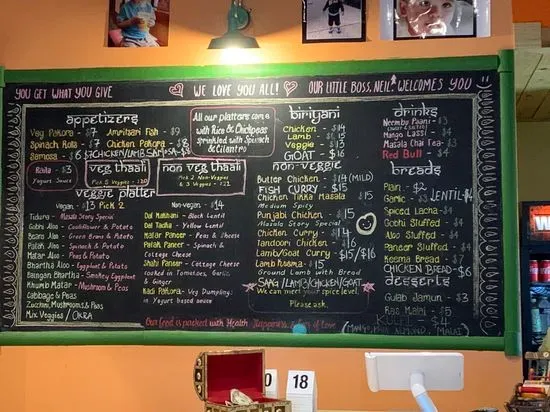 YOU GET WHAT YOU GIVE
WE LOVE YOU ALL!
OUR LITTLE BOSS, NEIL, WELCOMES YOU
appetizers
Veg Pakora - $7
Amritsari Fish - $9
Spinach Rolls - $7
Chicken Pakora - $8
Samosa - $7
CHICKEN/LAMB SAMOSA
Raita - $3
Yogurt Sauce
veg thaali
Pick 5 Veggies - $20
non veg thaali
Pick 2 Non-Veggies
& 3 Veggies - $21
All our platters come
with Rice & Chickpeas
sprinkled with Spinach
& Cilantro
veggie platter
Vegan - $13 Pick 2
Tidora - Masala Story Special
Gobhi Aloo - Cauliflower & Potato
Beans Aloo - Green Beans & Potato
Palak Aloo - Spinach & Potato
Matar Aloo - Peas & Potato
Bhartha Aloo - Eggplant & Potato
Baingan Bhartha - Smokey Eggplant
Khumb Matar - Mushroom & Peas
Cabbage & Peas
Zucchini, Mushrooms & Peas
Mix Veggies / OKRA
Non-vegan - $14
Dal Makhani - Black Lentil
Dal Tadka - Yellow Lentil
Matar Paneer - Peas & Cheese
Palak Paneer - Spinach &
Cottage Cheese
Shahi Paneer - Cottage Cheese
cooked in Tomatoes, Garlic
& Ginger
Kadi Pakora - Veg Dumpling
in Yogurt based sauce
biriyani
Chicken - $14
Lamb - $15
Veggie - $13
GOAT - $16
non veggie
Butter Chicken - $14 (MILD)
FISH CURRY - $15
Chicken Tikka Masala - $15
Medium Spicy
Punjabi Chicken - $15
Masala Story Special
Chicken Curry - $14
Tandoori Chicken - $16
Lamb/Goat Curry - $15/$16
Lamb Keema - $15
Ground Lamb with Bread
SAAG/LAMB/CHICKEN/GOAT
We can meet your spice level.
Please ask.
drinks
Neembu Paani - $3
Mango Lassi - $4
Masala Chai Tea - $3
Red Bull - $4
breads
Plain - $2
Garlic - $3
LENTIL - $4
Spiced Lacha - $4
Gobhi Stuffed - $4
Aloo Stuffed - $4
Paneer Stuffed - $4
Keema Bread - $7
CHICKEN BREAD - $6
desserts
Gulab Jamun - $3
Ras Malai - $5
Our food is packed with Health, Happiness & lots of Love
18